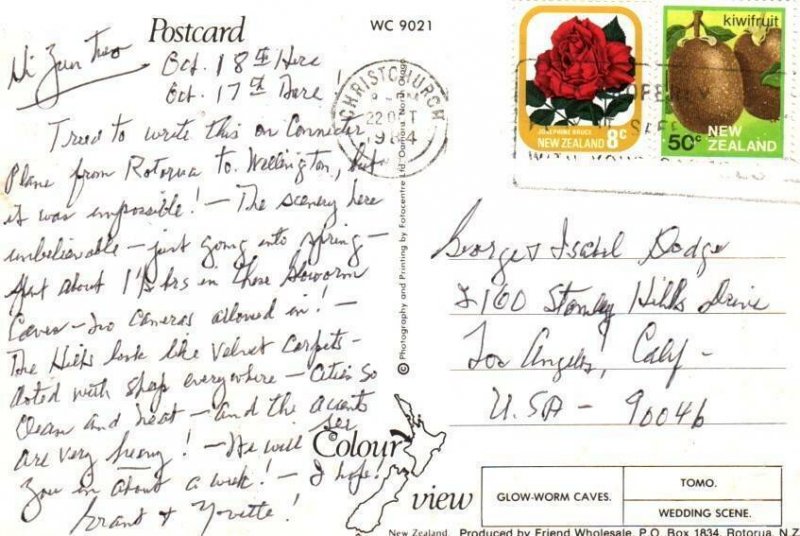 Postcard
WC 9021
Hi You Two
Oct. 18th Here
Oct. 17th There!
Tried to write this on Connector
Plane from Rotorua to Wellington, but
it was impossible! - The scenery here
unbelievable - just going into spring -
Spent about 1½ hrs in those Gloworm
Caves - no cameras allowed in! -
The Hills look like Velvet Carpets -
doted with sheep everywhere - Cities so
Clean and neat - and the accents
are very heavy! - We will see
you in about a week! - I hope!
Grant & Yvette!
CHRISTCHURCH
22 OCT
1984
JOSEPHINE BRUCE
NEW ZEALAND 8c
kiwifruit
NEW
50c ZEALAND
George & Isabel Dodge
2160 Stanley Hills Drive
Los Angeles, Calif -
U.SA - 90046
© Photography and Printing by Fotocentre Ltd, Oamaru, North Otago
Colour
view
GLOW-WORM CAVES.
TOMO.
WEDDING SCENE.
New Zealand. Produced by Friend Wholesale, P.O. Box 1834, Rotorua, N.Z